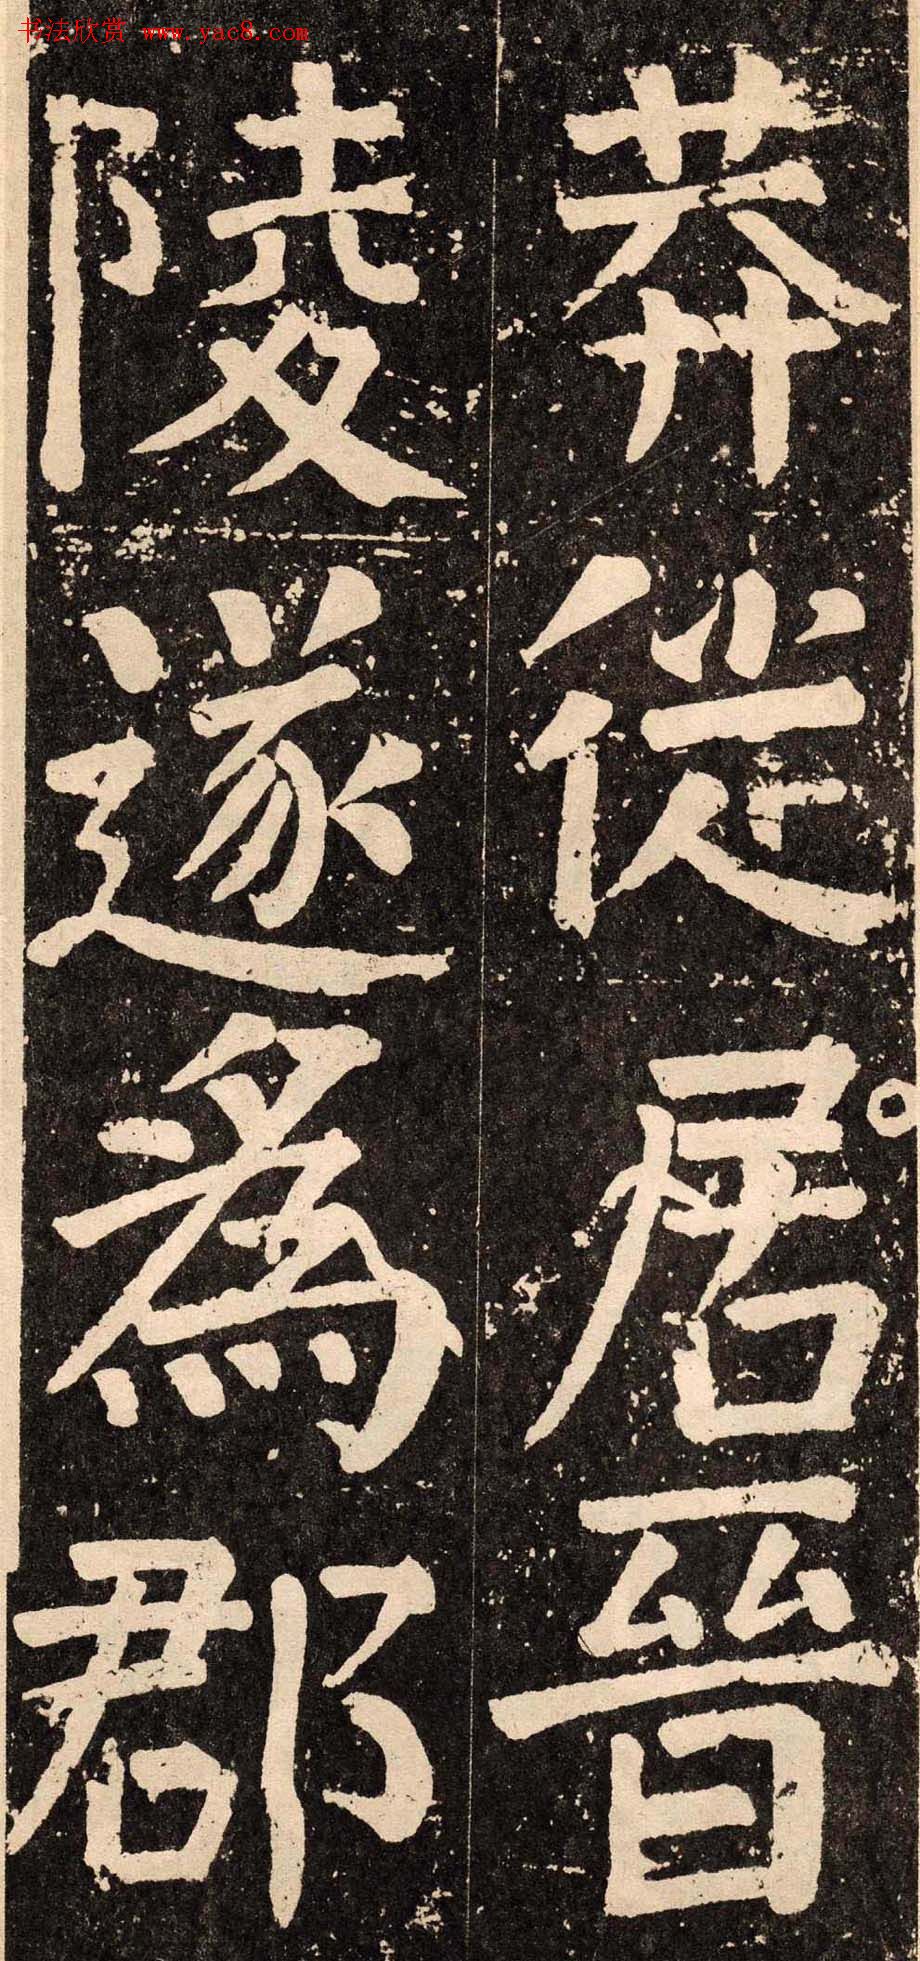 书法欣赏 www.yac8.com
莽從居晉
陵遂為郡